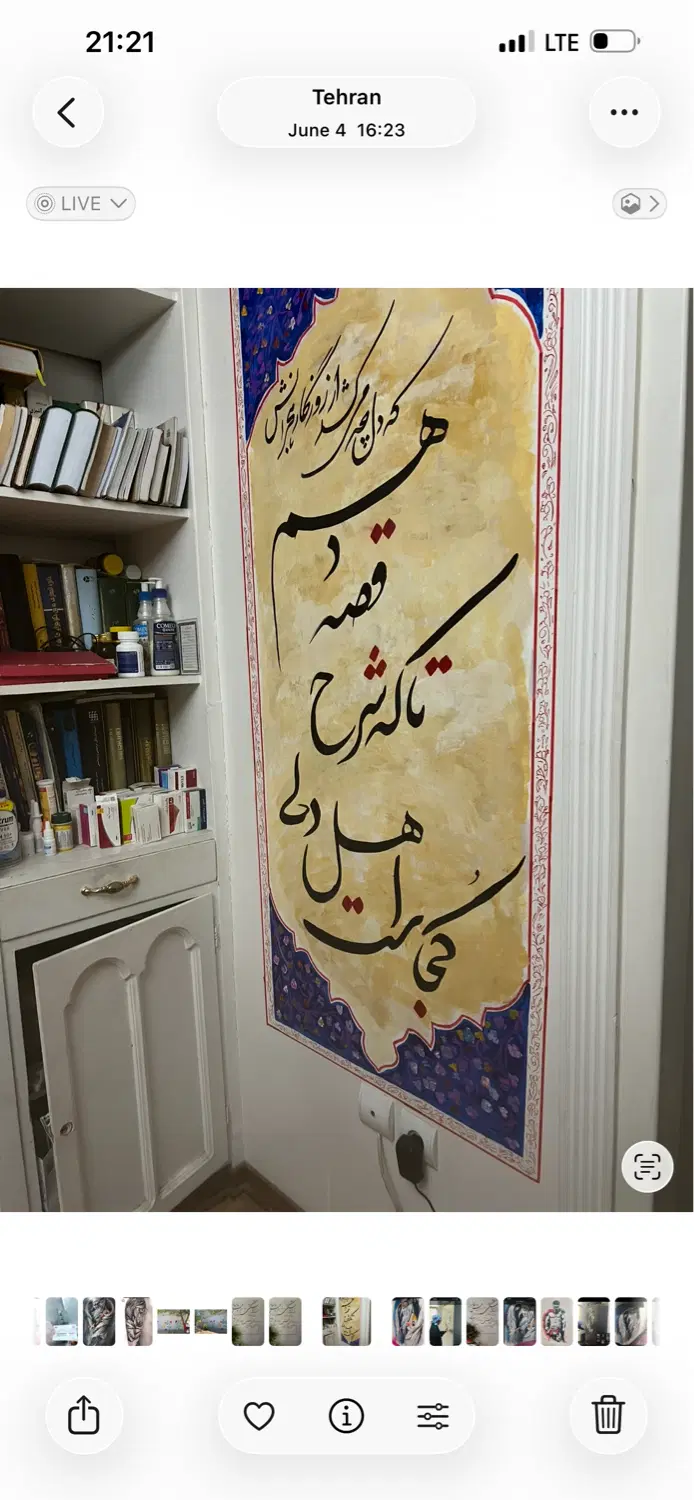 21:21
LTE
Tehran
June 4 16:23
LIVE
کجاست
اهل دلی
تا که شرح
قصه
دهم
که دل چه می‌کشد از روزگار هجرانش